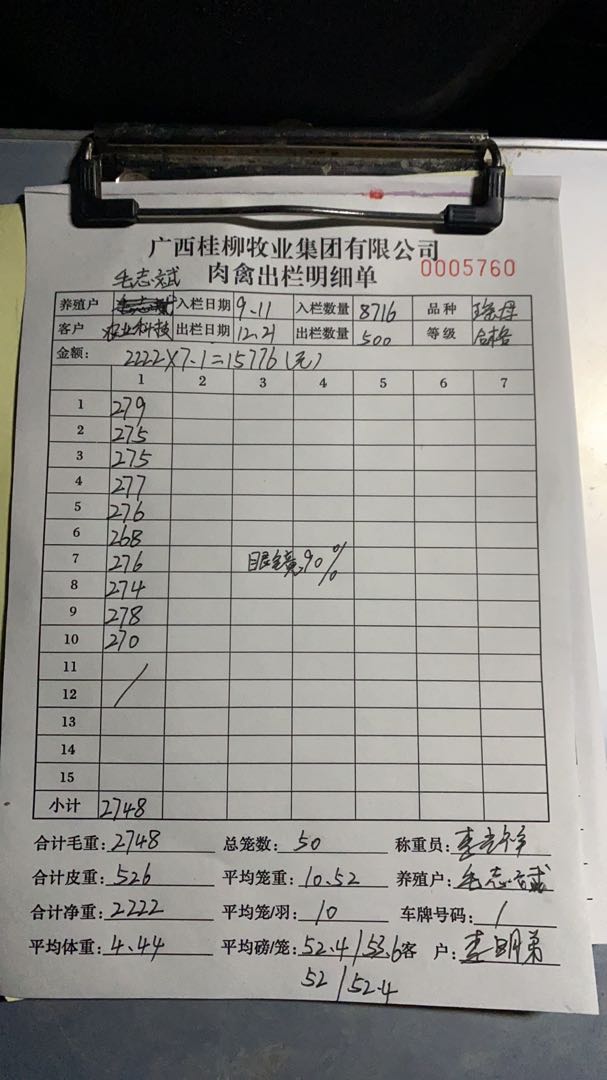 广西桂柳牧业集团有限公司
肉禽出栏明细单 0005760
毛志斌
养殖户 入栏日期 9.11 入栏数量 8716 品种
客户 农业科技 出栏日期 12.21 出栏数量 500 等级 合格
金额: 2222×7.1=15776(元)
1 2 3 4 5 6 7
1 279
2 275
3 275
4 277
5 276
6 268
7 276 眼镜90%
8 274
9 278
10 270
11
12
13
14
15
小计 2748
合计毛重: 2748 总笼数: 50 称重员:
合计皮重: 526 平均笼重: 10.52 养殖户: 毛志斌
合计净重: 2222 平均笼/羽: 10 车牌号码: /
平均体重: 4.44 平均磅/笼: 52.4/53.6 客户: 李明弟
52/52.4